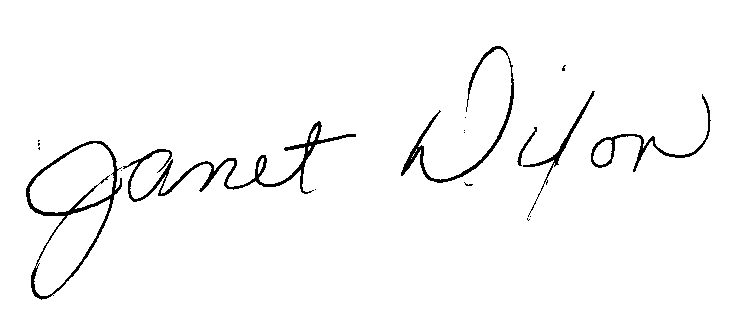 Janet Dixon